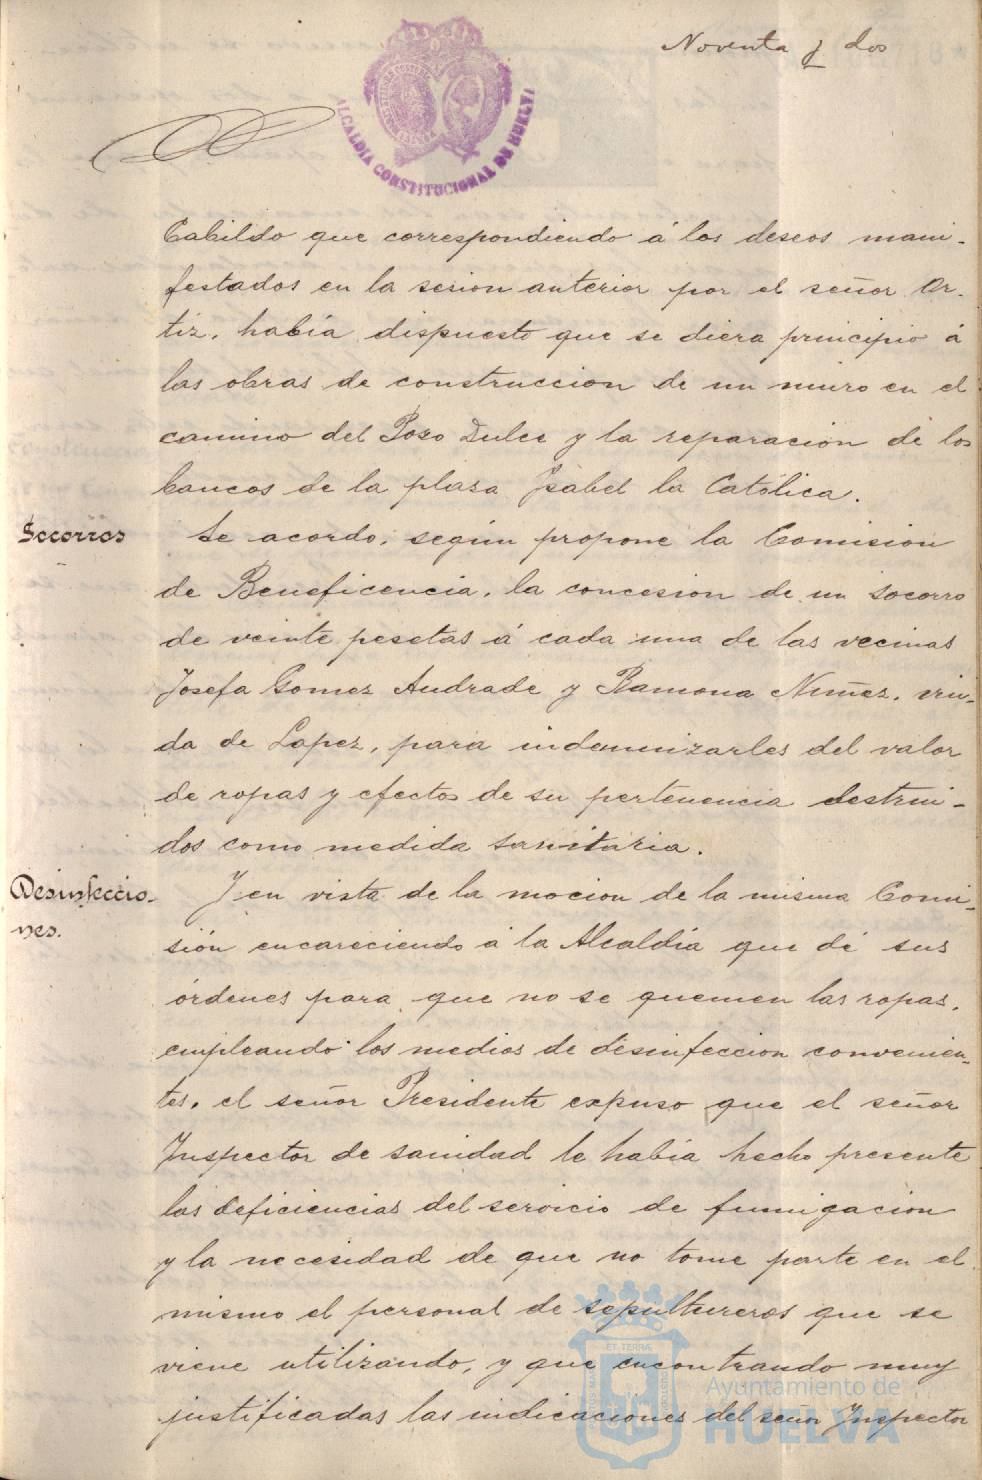 Noventa y dos
ALCALDIA CONSTITUCIONAL DE HUELVA
Cabildo que correspondiendo á los deseos mani-
festados en la sesion anterior por el señor Or-
tiz, había dispuesto que se diera principio á
las obras de construccion de un muro en el
camino del Pozo Dulce y la reparación de los
bancos de la plaza Isabel la Católica.
Socorros
Se acordó, según propone la Comision
de Beneficencia, la concesion de un socorro
de veinte pesetas á cada una de las vecinas
Josefa Gomez Andrade y Ramona Nuñez, viu-
da de Lopez, para indemnizarles del valor
de ropas y efectos de su pertenencia destrui-
dos como medida sanitaria.
Desinfeccio-
nes.
Y en vista de la mocion de la misma Comi-
sión encareciendo á la Alcaldía que dé sus
órdenes para que no se quemen las ropas,
empleando los medios de desinfeccion convenien-
tes, el señor Presidente expuso que el señor
Inspector de sanidad le había hecho presente
las deficiencias del servicio de fumigacion
y la necesidad de que no tome parte en el
mismo el personal de sepultureros que se
viene utilizando, y que encontrando muy
justificadas las indicaciones del señor Inspector
ET TERRÆ
Ayuntamiento de
HUELVA